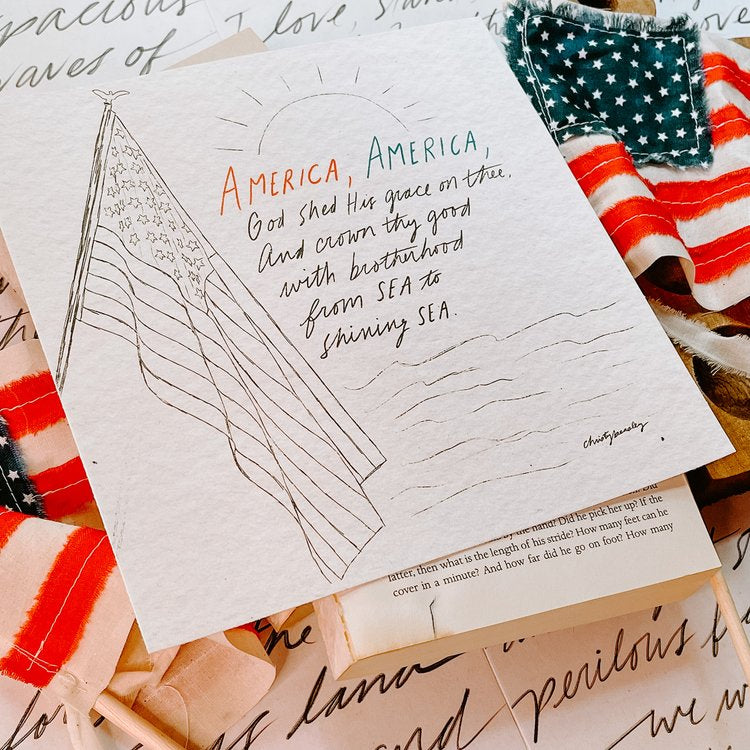 spacious
waves of
I love,
AMERICA, AMERICA,
God shed His grace on thee.
And crown thy good
with brotherhood
from SEA to
shining SEA.
christybeasley
by the hand? Did he pick her up? If the
latter, then what is the length of his stride? How many feet can he
cover in a minute? And how far did he go on foot? How many
the land
perilous
and
we